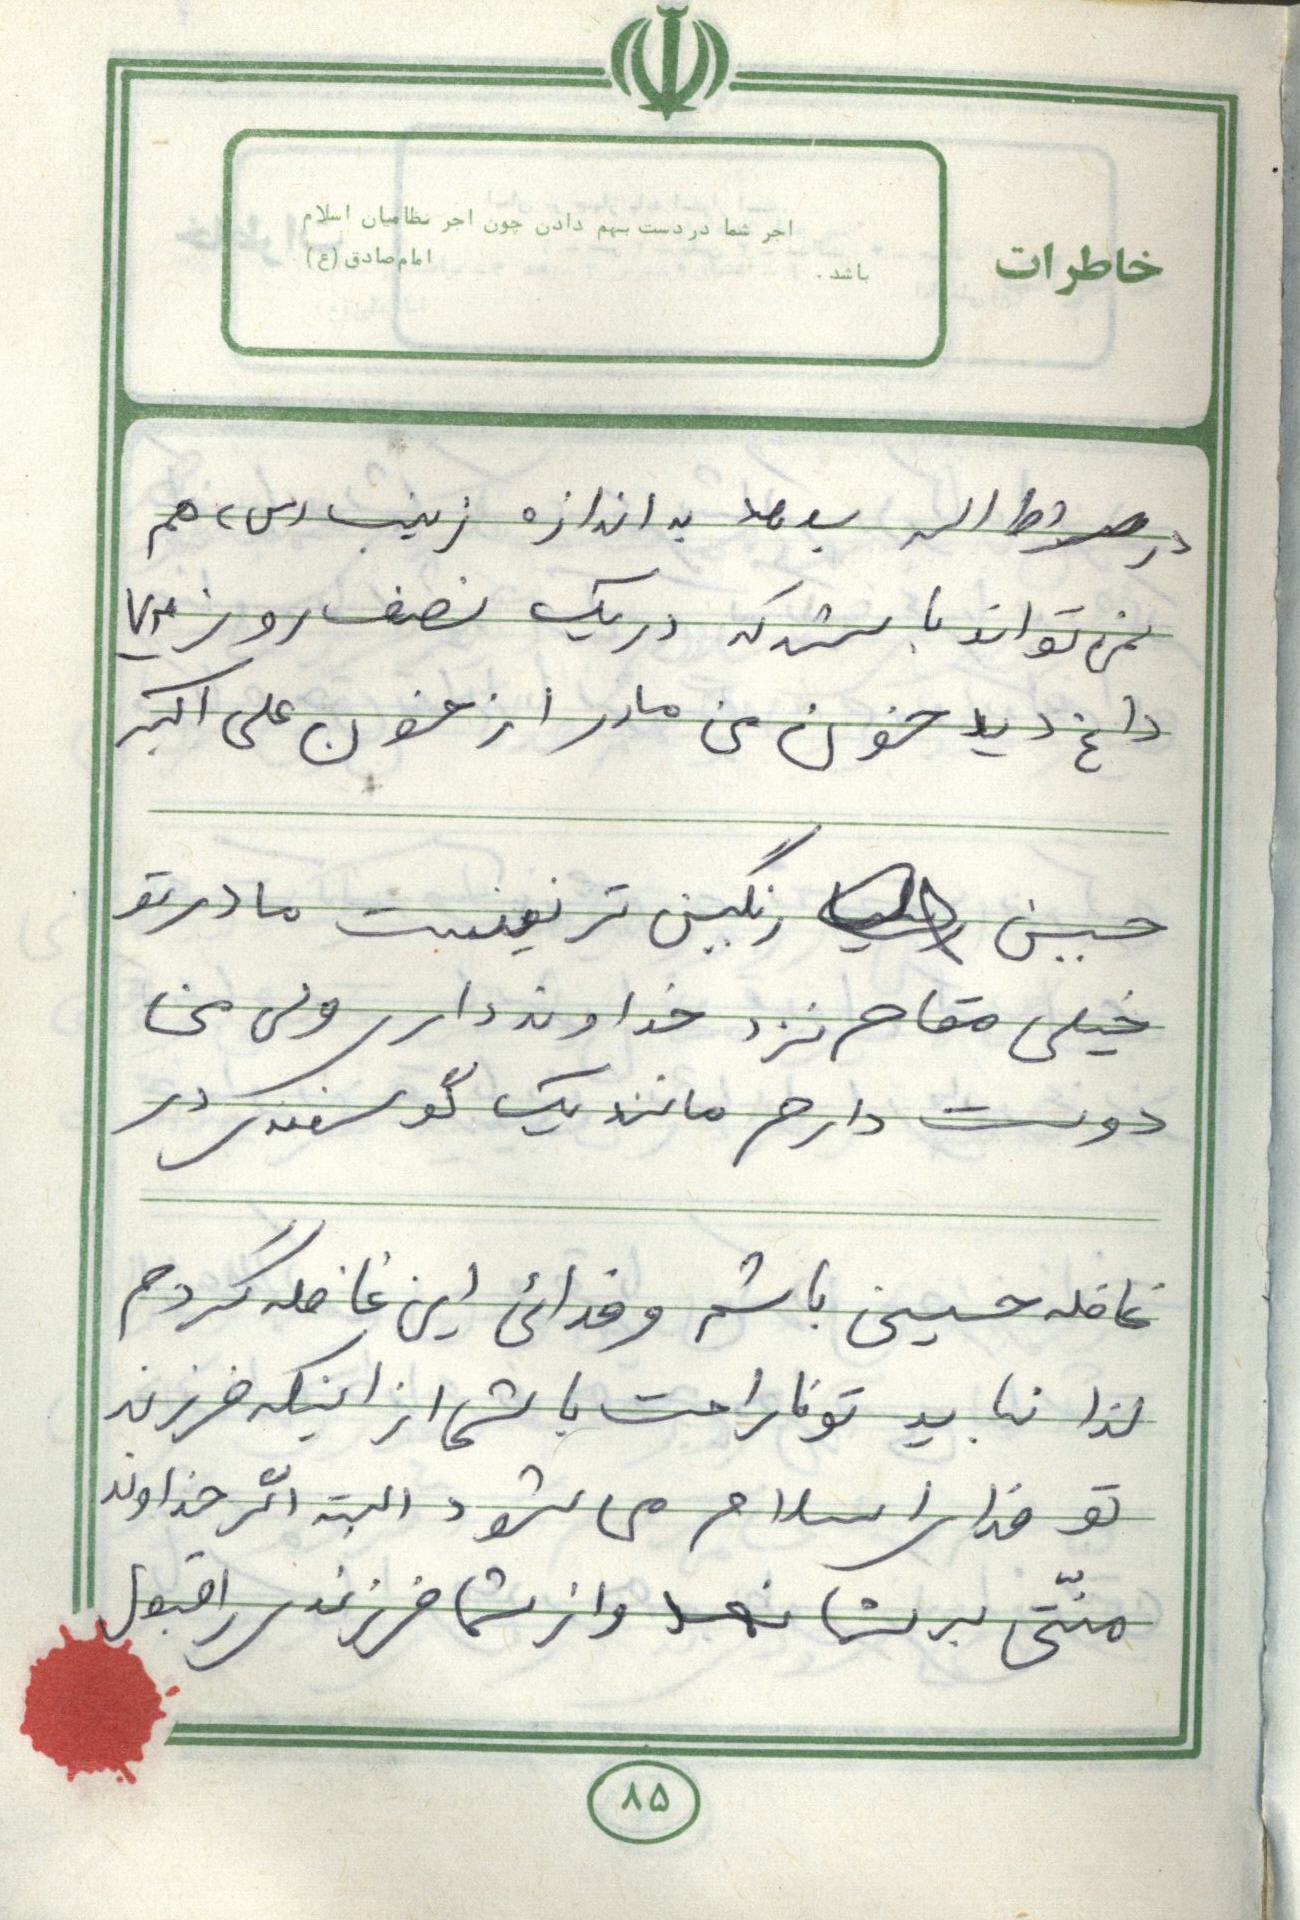 خاطرات
اجر شما در دست بهم دادن چون اجر نظامیان اسلام
باشد. امام صادق (ع)
در صراط الله به اندازه زینب (س) هم
نمی تواند باشد که در یک نصف روز ۷۲
داغ دید خون من مادر از خون علی اکبر
حسین رنگین تر نیست مادر تو
خیلی مقام نزد خداوند داری ولی من
دوست دارم مانند یک گوسفندی در
غافله حسینی باشم و فدائی این غافله گردم
لذا نباید تو ناراحت باشی از اینکه فرزند
تو فدای اسلام می شود البته اگر خداوند
منّتی بر شما نهد و از شما فرزندی را قبول
۸۵